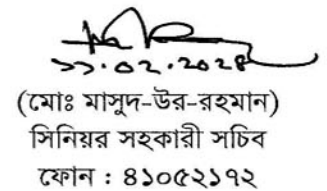 ১১.০২.২০২৪
(মোঃ মাসুদ-উর-রহমান)
সিনিয়র সহকারী সচিব
ফোন : ৪১০৫২১৭২